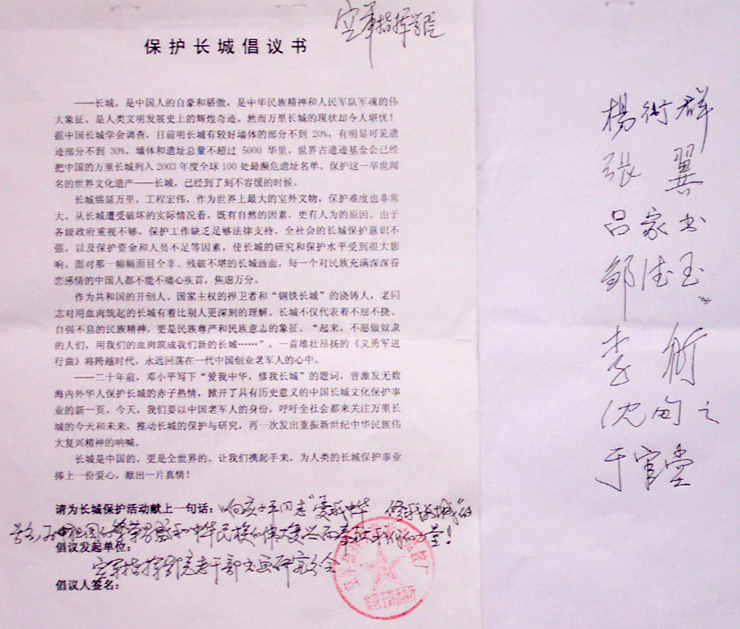 空军指挥学院
保护长城倡议书
——长城，是中国人的自豪和骄傲，是中华民族精神和人民军队军魂的伟
大象征，是人类文明发展史上的辉煌奇迹。然而万里长城的现状却令人堪忧！
据中国长城学会调查，目前明长城有较好墙体的部分不到 20%，有明显可见遗
迹部分不到 30%，墙体和遗址总量不超过 5000 华里。世界古遗迹基金会已经
把中国的万里长城列入 2003 年度全球 100 处最濒危遗址名单。保护这一举世闻
名的世界文化遗产——长城，已经到了刻不容缓的时候。
长城绵延万里，工程宏伟，作为世界上最大的室外文物，保护难度也非常
大。从长城遭受破坏的实际情况看，既有自然的因素，更有人为的原因。由于
各级政府重视不够，保护工作缺乏足够法律支持，全社会的长城保护意识不
强，以及保护资金和人员不足等因素，使长城的研究和保护水平受到很大影
响。面对那一幅幅面目全非、残破不堪的长城画面，每一个对民族充满深深眷
恋感情的中国人都不能不痛心疾首，焦虑万分。
作为共和国的开创人、国家主权的捍卫者和“钢铁长城”的浇铸人，老同
志对用血肉筑起的长城有着比别人更深刻的理解。长城不仅代表着不屈不挠、
自强不息的民族精神，更是民族尊严和民族意志的象征。“起来，不愿做奴隶
的人们，用我们的血肉筑成我们新的长城……”，一首雄壮昂扬的《义勇军进
行曲》将跨越时代，永远回荡在一代中国创业老军人的心中。
——二十年前，邓小平写下“爱我中华，修我长城”的题词，曾激发无数
海内外华人保护长城的赤子热情，掀开了具有历史意义的中国长城文化保护事
业的新一页。今天，我们要以中国老军人的身份，呼吁全社会都来关注万里长
城的今天和未来，推动长城的保护与研究，再一次发出重振新世纪中华民族伟
大复兴精神的呐喊。
长城是中国的，更是全世界的。让我们携起手来，为人类的长城保护事业
捧上一份爱心，献出一片真情！
请为长城保护活动献上一句话：“响应小平同志“爱我中华 修我长城”的
号召，为祖国的繁荣富强和中华民族的伟大复兴而奉献我们的力量！
倡议发起单位：
空军指挥学院老干部书画研究会
倡议人签名：
楊衍群
张翼
吕家书
邹德玉
李衍
于官堂